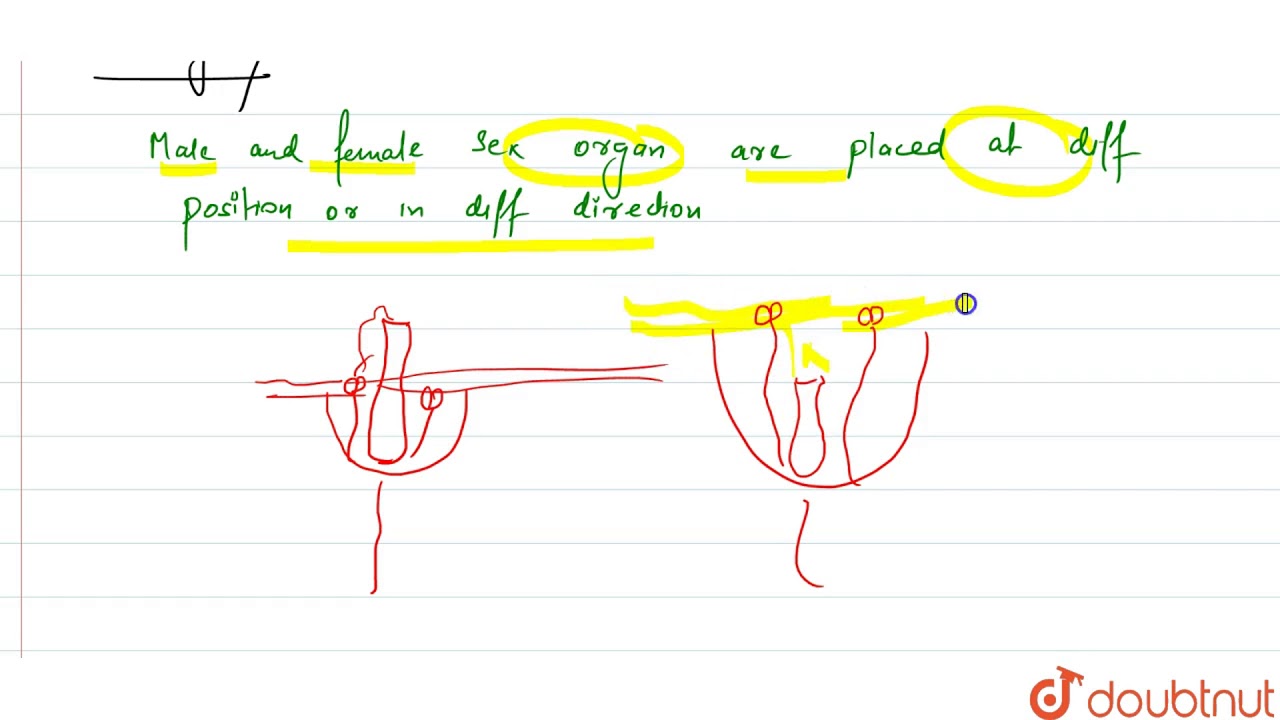 Male and female sex organ are placed at diff
position or in diff direction
doubtnut